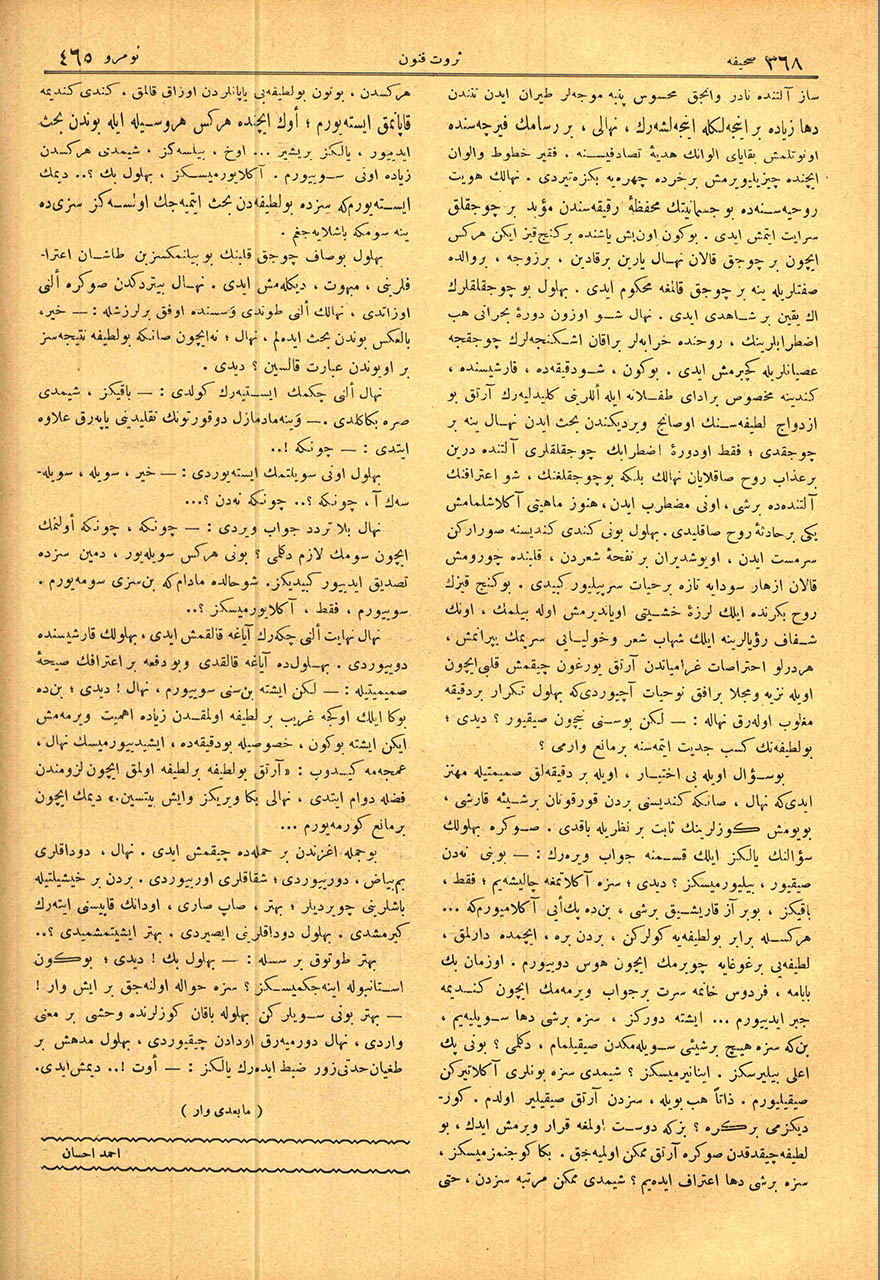 ٣٦٨ صحیفه
ثروت فنون
نومرو ٤٦٥
ساز آلتنده نادر وآنجق محسوس پنبه موجه‌لر طیران ایدن تندن
دها زیاده بر اینجه‌لکله اینجه‌لشه‌رك ، نهالی ، بر رسامك فیرچه‌سنده
اونوتلمش بقایای الوانك هدیهٔ تصادفیسنه ، فقیر خطوط والوان
ایچنده چیزیلیویرمش برخرده چهره‌یه بکزه‌تیردی . نهالك هویت
روحیه‌سنه‌ده بو جسمانیتك محفظهٔ رقیقه‌سندن مؤید بر چوجقلق
سرایت ایتمش ایدی . بوکون اون‌یش یاشنده برکنج‌قیز ایکن هرکس
ایچون بر چوجق قالان نهال یارین برقادین ، برزوجه ، بروالده
صفتلریله ینه بر چوجق قالمغه محکوم ایدی . بهلول بو چوجقلقلرك
اك یقین بر شاهدی ایدی . نهال شو اوزون دورهٔ بحرانی هب
اضطرابلرینك ، روحنده خرابه‌لر براقان اشکنجه‌لرك چوجقجه
عصیانلریله کچیرمش ایدی . بوکون ، شودقیقه‌ده ، قارشیسنده ،
کندینه مخصوص برادای طفلانه ایله أللرینی کلیدلیه‌رك آرتق بو
ازدواج لطیفه‌سنك اوصانج ویردیکندن بحث ایدن نهال ینه بر
چوجقدی ؛ فقط اودورهٔ اضطرابك چوجقلقلری آلتنده درین
برعذاب روح صاقلایان نهالك بلکه بوچوجقلغنك ، شو اعترافنك
آلتنده‌ده برشی ، اونی مضطرب ایدن ، هنوز ماهیتی آکلاشلمامش
یکی برحادثهٔ روح صاقلیدی . بهلول بونی کندی کندیسنه صورارکن
سرمست ایدن ، اویوشدیران بر نفحهٔ شعردن ، قلبنده چورومش
قالان ازهار سودایه تازه برحیات سرپیلیور کبیدی . بوکنج قیزك
روح بکرنده ایلك لرزهٔ خشیتی اویاندیرمش اوله بیلمك ، اونك
شفاف رؤیالرینه ایلك شهاب شعر وخولیایی سرپمك بیرانمش ،
هردرلو احتراصات غرامیاتدن آرتق یورغون چیقمش قلبی ایچون
اویله نزیه ومجلا برافق نوحیات آچیوردی‌که بهلول تکرار بردقیقه
مغلوب اوله‌رق نهاله : — لکن بوسنی نیچون صیقیور ؟ دیدی ؛
بولطیفه‌نك کسب جدیت ایتمه‌سنه برمانع وارمی ؟
بوسؤال اویله بی اختیار ، اویله بر دقیقه‌لق صمیمتیله مهتز
ایدی‌که نهال ، صانکه کندیسنی بردن قورقوتان برشیئه قارشی ،
بویومش کوزلرینك ثابت بر نظریله باقدی . صوکره بهلولك
سؤالنك یالکز ایلك قسمنه جواب ویره‌رك : — بونی نه‌دن
صیقیور ، بیلیورمیسکز ؟ دیدی ؛ سزه آکلاتمغه چالیشه‌یم ؛ فقط ،
باقیکز ، بوبر آز قاریشیق برشی ، بن‌ده پك‌أیی آکلامیورم‌که ...
هرکسله برابر بولطیفه‌یه کولرکن ، بردن بره ، ایچمده دارلمق ،
لطیفه‌یی برغوغایه چویرمك ایچون هوس دوییورم . اوزمان بك
بابامه ، فردوس خانمه سرت برجواب ویرمه‌مك ایچون کندیمه
جبر ایدییورم ... ایشته دورکز ، سزه برشی دها سویلیه‌یم ،
بن‌که سزه هیچ برشیئی سویله‌مکدن صیقیلمام ، دکلمی ؟ بونی پك
اعلی بیلیرسکز . اینانیرمیسکز ؟ شیمدی سزه بونلری آکلاتیرکن
صیقیلیورم . ذاتاً هب بویله ، سزدن آرتق صیقیلیر اولدم . کور-
دیکزمی برکره ؟ بزکه دوست اولمغه قرار ویرمش ایدك ، بو
لطیفه چیقدقدن صوکره آرتق ممکن اولمیه‌جق . بکا کوجنمزمیسکز ،
سزه برشی دها اعتراف ایده‌یم ؟ شیمدی ممکن مرتبه سزدن ، حتی
هرکسدن ، بوتون بولطیفه‌یی یاپانلردن اوزاق قالمق ، کندی کندیمه
قاپانمق ایسته‌یورم ؛ أوك ایچنده هرکس هروسیله ایله بوندن بحث
ایدییور ، یالکز بریشیر ... اوخ ، بیلسه‌کز ، شیمدی هرکسدن
زیاده اونی سوییورم . آکلایورمیسکز ، بهلول بك ؟.. دیمك
ایسته‌یورم‌که سزده بولطیفه‌دن بحث ایتمیه‌جك اولسه‌کز سزی‌ده
ینه سومکه باشلایه‌جغم .
بهلول بوصاف چوجق قلبنك بو بیلنمکسزین طاشان اعترا-
فلرینی ، مبهوت ، دیکله‌مش ایدی . نهال بیتردکدن صوکره ألنی
اوزاتدی ، نهالك ألنی طوتدی وسسنده اوفق برلرزشله : — خیر ،
بالعکس بوندن بحث ایده‌لم ، نهال ؛ نه‌ایچون صانکه بولطیفه نتیجه‌سز
بر اویوندن عبارت قالسین ؟ دیدی .
نهال ألنی چکمك ایسته‌یه‌رك کولدی : — باقیکز ، شیمدی
صره بکاکلدی .— وینه مادمازل دوقورتونك تقلیدینی یاپه‌رق علاوه
ایتدی : — چونکه !..
بهلول اونی سویلتمك ایسته‌یوردی : — خیر ، سویله ، سویله-
سه‌ك آ ، چونکه ؟.. چونکه نه‌دن ؟...
نهال بلا تردد جواب ویردی : — چونکه ، چونکه أولنمك
ایچون سومك لازم دکلمی ؟ بونی هرکس سویله‌یور ، دمین سزده
تصدیق ایدییور کبیدیکز. شوحالده مادام‌که بن‌سزی سومه‌یورم .
سوییورم ، فقط ، آکلایورمیسکز ؟..
نهال نهایت ألنی چکه‌رك آیاغه قالقمش ایدی ، بهلولك قارشیسنده
دورییوردی . بهلول‌ده آیاغه قالقدی وبودفعه بر اعترافك صیحهٔ
صمیمیتیله : — لکن ایشته بن‌سنی سوییورم ، نهال ! دیدی ؛ بن‌ده
بوکا ایلك اوکجه غریب بر لطیفه اولمقدن زیاده اهمیت ویرمه‌مش
ایکن ایشته بوکون ، خصوصیله بودقیقه‌ده ، ایشیدییورمیسك نهال ،
عمجه‌مه کیدوب : «آرتق بولطیفه برلطیفه اولمق ایچون لزومندن
فضله دوام ایتدی ، نهالی بکا ویریکز وایش بیتسین.» دیمك ایچون
برمانع کورمه‌یورم ...
بوجمله اغزندن بر حمله‌ده چیقمش ایدی . نهال ، دوداقلری
بم‌بیاض ، دورییوردی ؛ شقاقلری اورییوردی . بردن بر خیشیلتیله
باشلرینی چویردیلر ؛ بهتر ، صاپ صاری ، اودانك قاپیسنی ایته‌رك
کیرمشدی . بهلول دوداقلرینی ایصیردی . بهتر ایشیتمشمیدی ؟..
بهتر طوتوق بر سسله : — بهلول بك ! دیدی ؛ بوکون
استانبوله اینه‌جکمیسکز ؟ سزه حواله اولنه‌جق بر ایش وار !
— بهتر بونی سویلرکن بهلوله باقان کوزلرنده وحشی بر معنی
واردی ، نهال دورمیه‌رق اودادن چیقیوردی ، بهلول مدهش بر
طغیان حدتی زور ضبط ایده‌رك یالکز : — أوت !.. دیمش‌ایدی.
( مابعدی وار )
احمد احسان